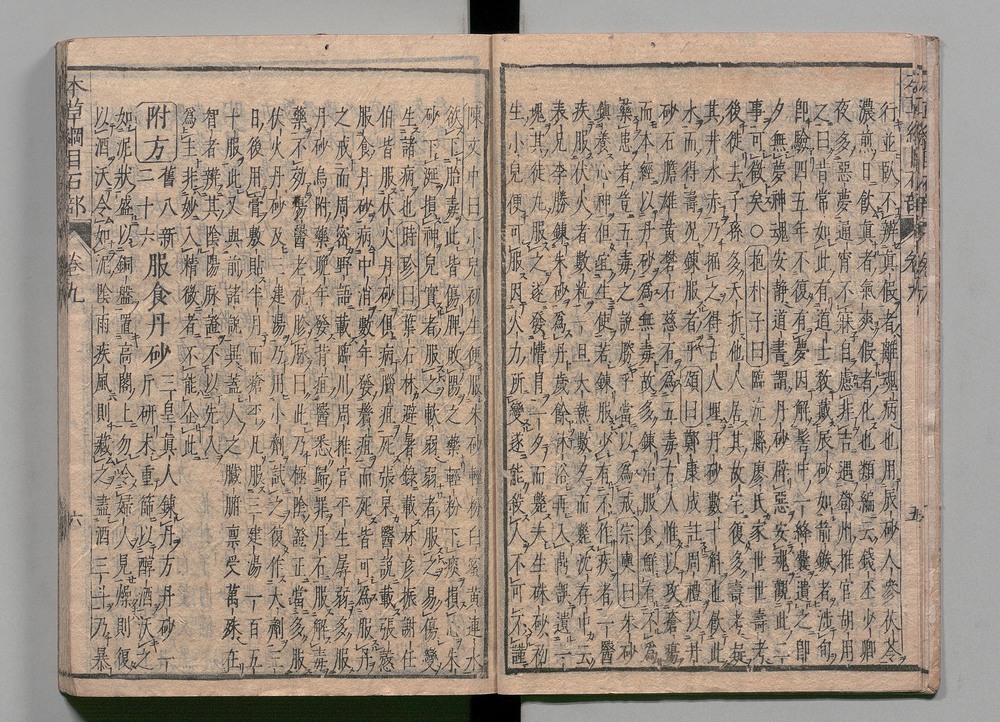 行並臥不辨真假者離魂病也用辰砂人參茯苓
濃煎日飲真者氣爽假者化也類編云錢丕少卿
夜多惡夢通宵不寐自慮非吉遇鄧州推官胡用
之曰昔常如此有道士教戴辰砂如箭鏃者涉旬
即驗四五年不復有夢因解髻中一絳囊遺之即
夕無夢神魂安靜道書謂丹砂辟惡安魂觀此二
事可徵矣○抱朴子曰臨沅縣廖氏家世世壽考
後徙去子孫多夭折他人居其故宅復多壽考疑
其井水赤乃掘之得古人埋丹砂數十斛也飲此
水而得壽況鍊服者乎頌曰鄭康成註周禮以丹
砂石膽雄黃礬石慈石為五毒古人惟以攻瘡瘍
而本經以丹砂為無毒故多鍊治服食鮮有不為
藥患者豈五毒之說勝乎當以為戒宗奭曰朱砂
鎮養心神但宜生使若鍊服少有不作疾者一醫
疾服伏火者數粒一旦大熱數夕而斃沈存中云
表兄李勝鍊朱砂為丹歲餘沐浴再入鼎誤遺一
塊其徒丸服之遂發懵冒一夕而斃夫生硃砂初
生小兒便可服因火力所變遂能殺人不可不謹
陳文中曰小兒初生便服朱砂輕粉白蜜黃連水
欲下胎毒此皆傷脾敗陽之藥輕粉下痰損心朱
砂下涎損神兒實者服之軟弱弱者服之易傷變
生諸病也時珍曰葉石林避暑錄載林彥振謝任
伯皆服伏火丹砂俱病腦疽死張杲醫說載張愨
服食丹砂病中消數年發鬢疽而死皆可為服丹
之戒而周密野語載臨川周推官平生孱弱多服
丹砂烏附藥晚年發背疽醫悉歸罪丹石服解毒
藥不效瘍醫老祝診脈曰此乃極陰證正當多服
伏火丹砂及三建湯乃用小劑試之復作大劑三
日後用膏敷貼半月而瘡平凡服三建湯一百五
十服此又與前諸說異蓋人之臟腑稟受萬殊在
智者辨其陰陽脈證不以先入
為主非妙入精微者不能企此
附方舊八新二十六服食丹砂三皇真人鍊丹方丹砂一斤研末重篩以醇酒沃之
如泥狀盛以銅盤置高閣上勿令婦人見燥則復
以酒沃令如泥陰雨疾風則藏之盡酒三斗乃暴
本草綱目石部
卷九
六